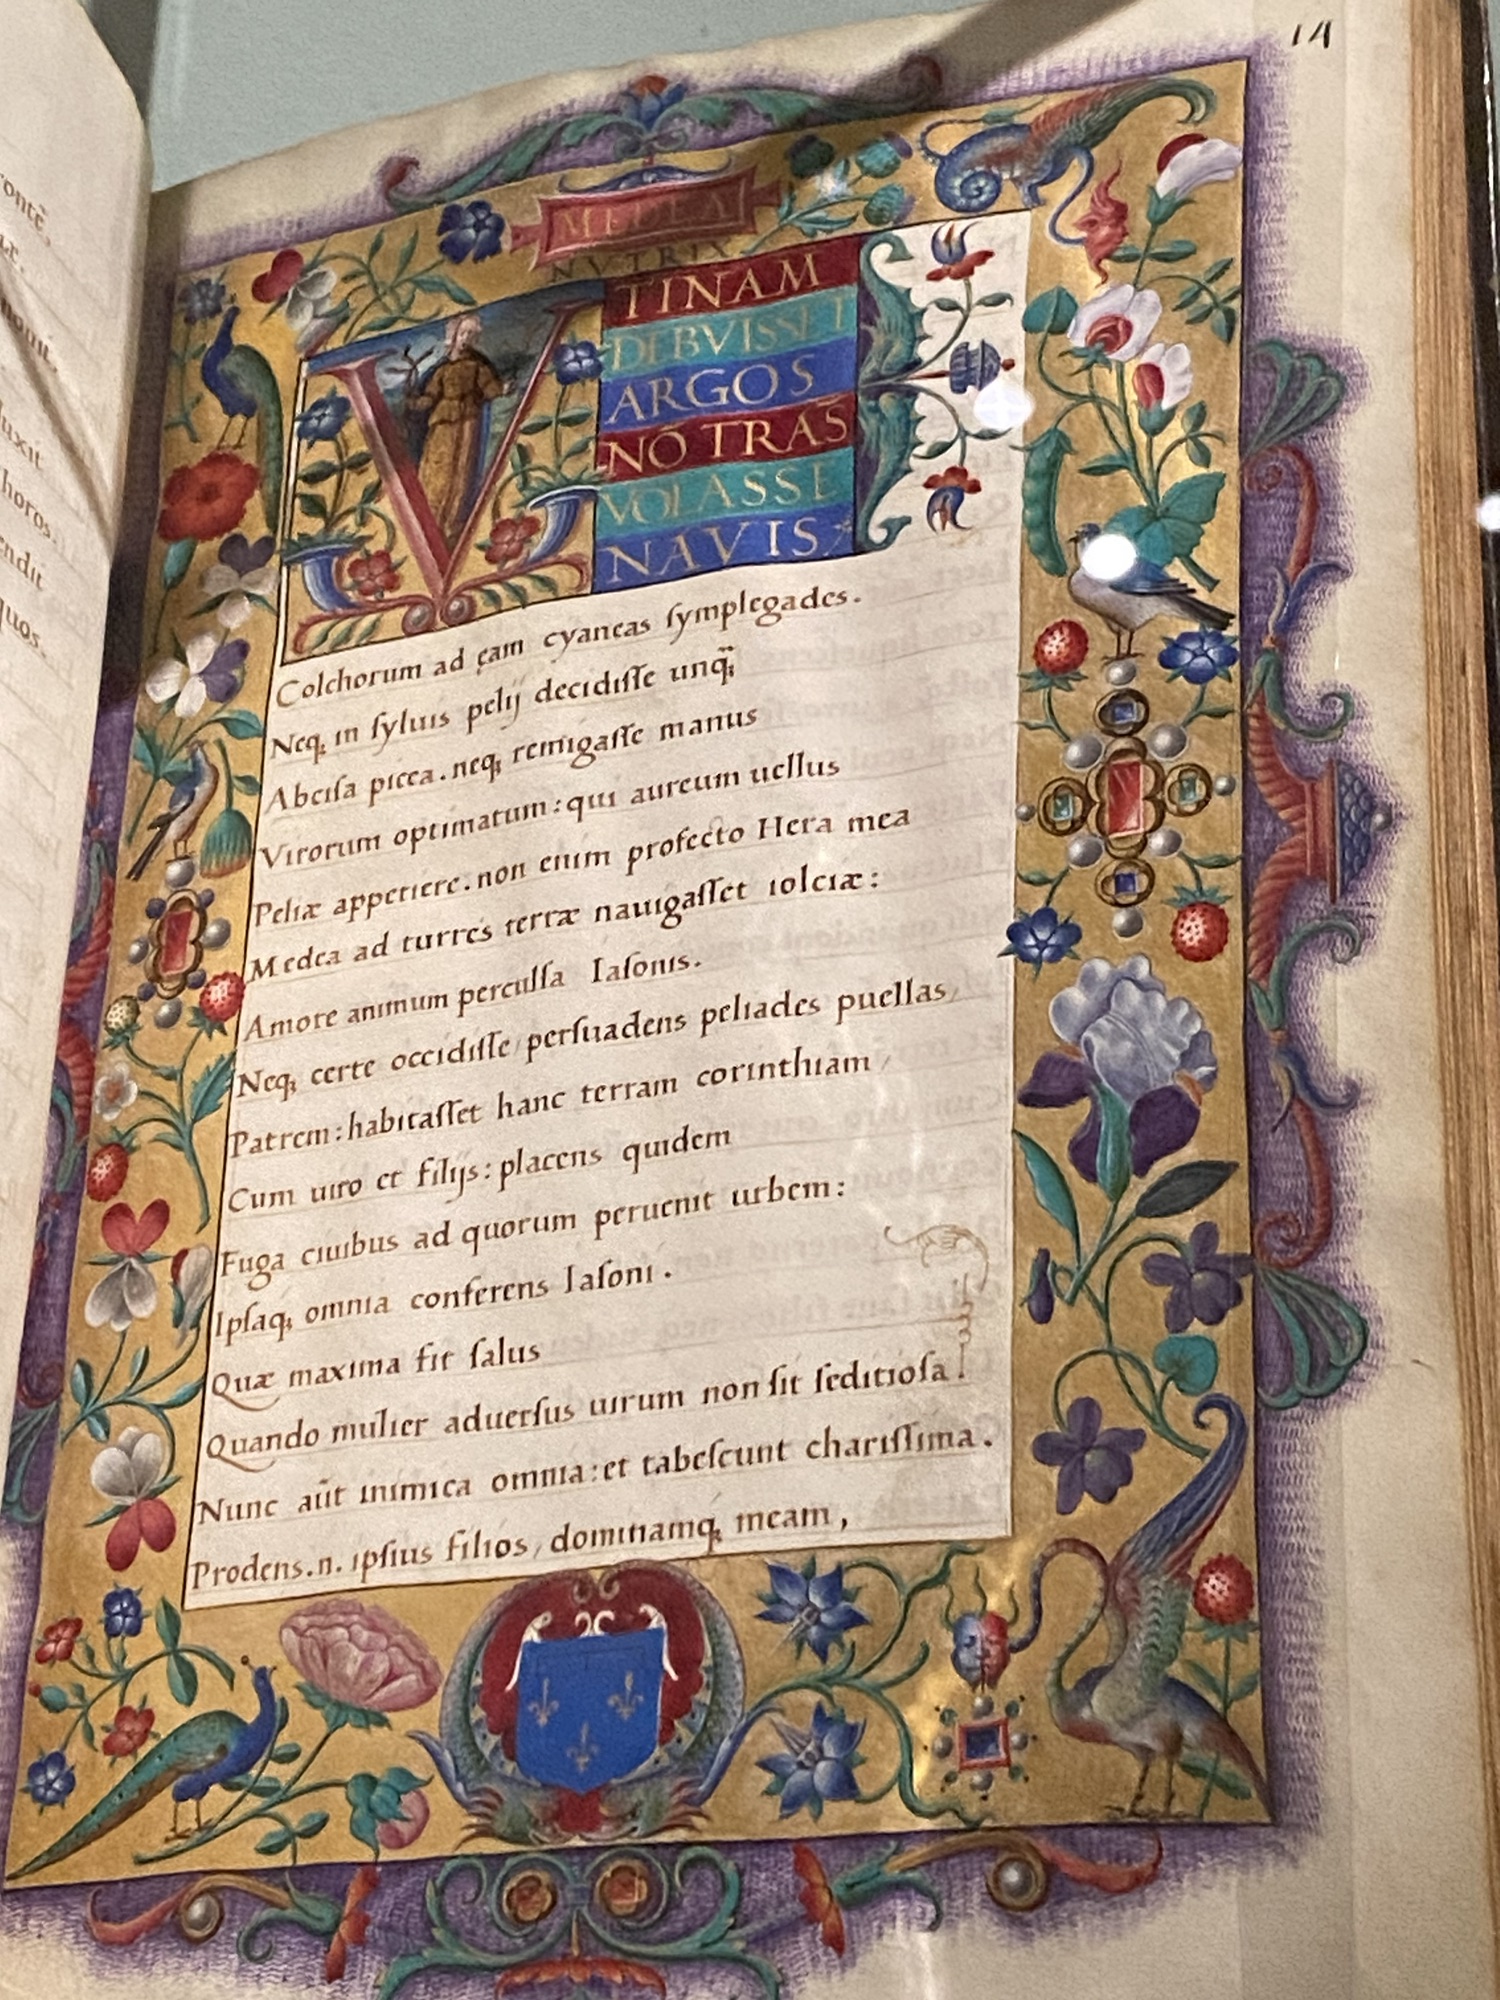 14
MEDEA
NVTRIX
VTINAM
DEBVISSET
ARGOS
NŌ TRĀS
VOLASSE
NAVIS
Colchorum ad ęam cyaneas ſymplegades.
Neq; in ſyluis pelij decidiſſe unq̃;
Abciſa picea. neq; remigaſſe manus
Virorum optimatum: qui aureum uellus
Peliæ appetiere. non enim profecto Hera mea
Medea ad turres terræ nauigaſſet iolciæ:
Amore animum perculſa Iaſonis.
Neq; certe occidiſſe / perſuadens peliades puellas /
Patrem: habitaſſet hanc terram corinthiam /
Cum uiro et filijs: placens quidem
Fuga ciuibus ad quorum peruenit urbem:
Ipſaq; omnia conferens Iaſoni.
Quæ maxima fit ſalus
Quando mulier aduerſus uirum non ſit ſeditioſa.
Nunc aūt inimica omnia: et tabeſcunt chariſſima.
Prodens. n. ipſius filios / dominamq; meam,
ontē,
uxit
horos.
endit
quos.